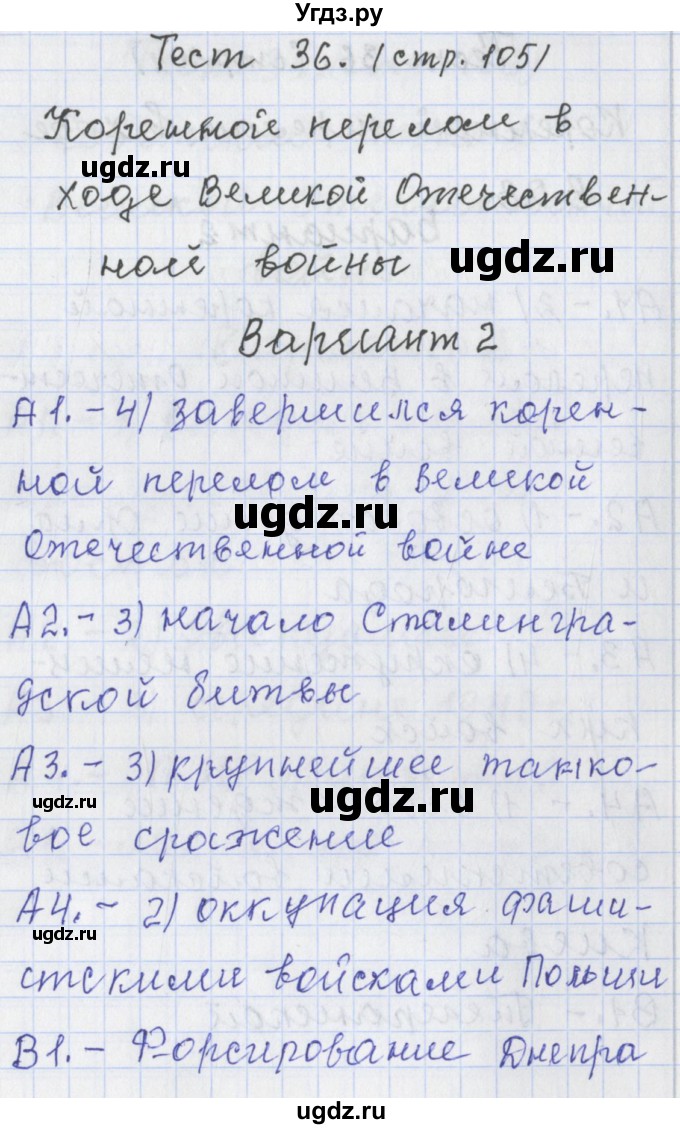 Угдз.ру
Тест 36. (стр. 105)
Коренной перелом в
ugdz.ru
ходе Великой Отечествен-
ной войны ugdz.ru
Вариант 2
А1. - 4) завершился корен-
ной перелом в Великой
ugdz.ru
Отечественной войне
А2. - 3) начало Сталингра-
дской битвы
А3. - 3) крупнейшее танко-
ugdz.ru ugdz.ru
вое сражение
А4. - 2) оккупация фаши-
ugdz.ru
стскими войсками Польши
В1. - Форсирование Днепра
ugdz.ru